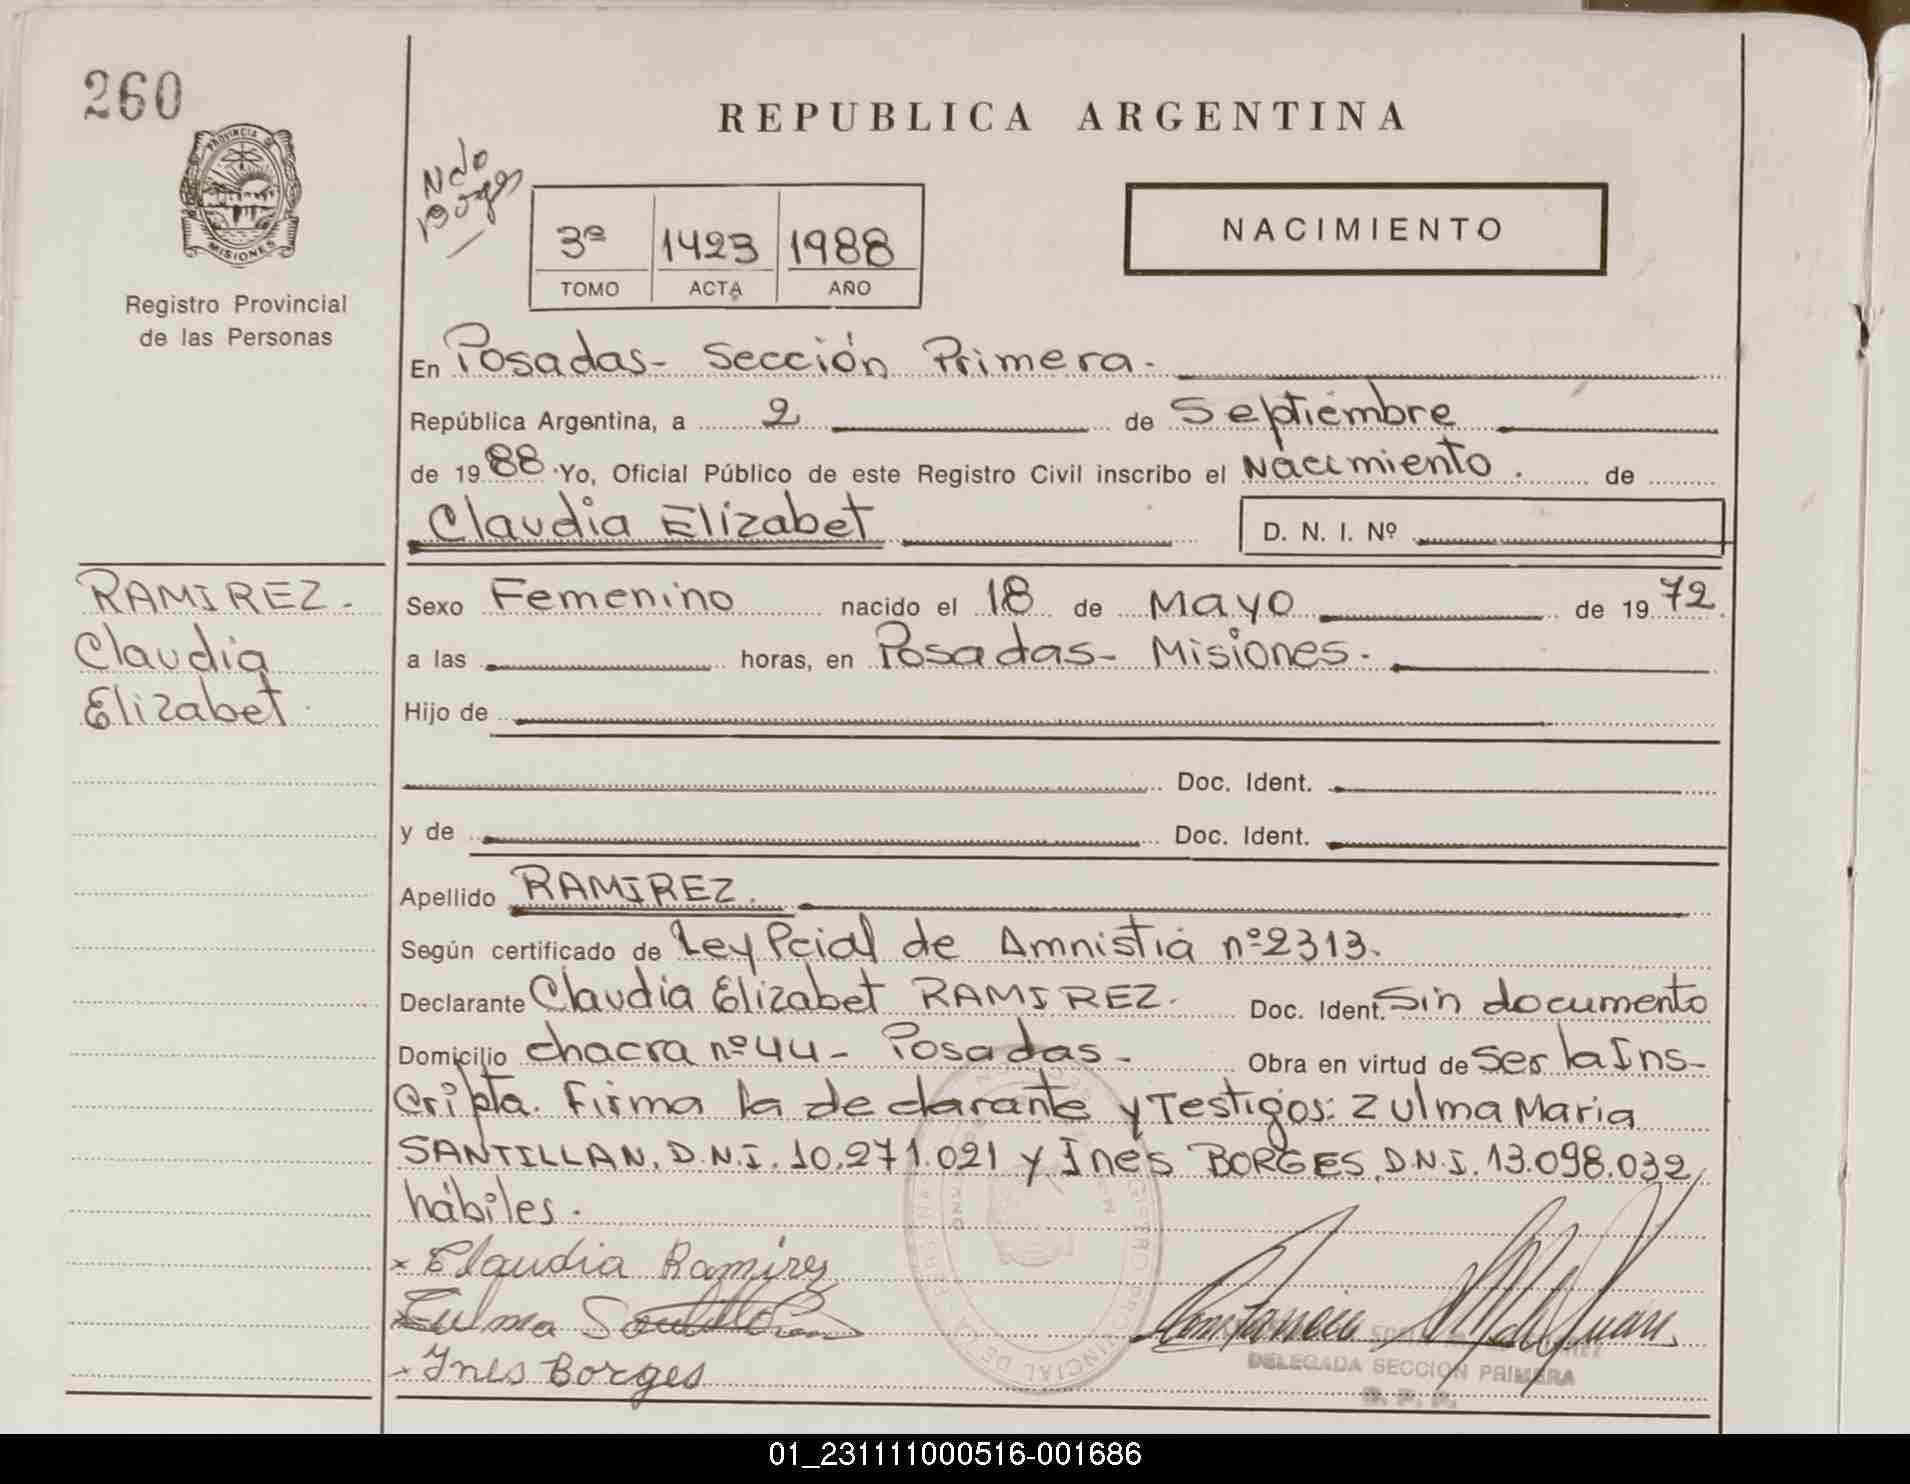 260
PROVINCIA DE
MISIONES
Registro Provincial
de las Personas
REPUBLICA ARGENTINA
3º 1423 1988
TOMO ACTA AÑO
NACIMIENTO
En Posadas- Sección Primera.
República Argentina, a 2 de Septiembre
de 1988. Yo, Oficial Público de este Registro Civil inscribo el Nacimiento. de
Claudia Elizabet D. N. I. Nº
RAMIREZ.
Claudia
Elizabet
Sexo Femenino nacido el 18 de Mayo de 1972.
a las horas, en Posadas- Misiones.
Hijo de
Doc. Ident.
y de Doc. Ident.
Apellido RAMIREZ.
Según certificado de Ley Pcial de Amnistia nº2313.
Declarante Claudia Elizabet RAMIREZ. Doc. Ident. Sin documento
Domicilio chacra nº44- Posadas- Obra en virtud de Ser la Ins-
cripta. Firma la declarante y Testigos: Zulma Maria
SANTILLAN. D.N.I. 10.271.021 y Ines BORGES. D.N.I. 13.098.032
hábiles.
x Claudia Ramirez
x Zulma Santillan
x Ines Borges
DELEGADA SECCION PRIMERA
R. P. P.
01_231111000516-001686